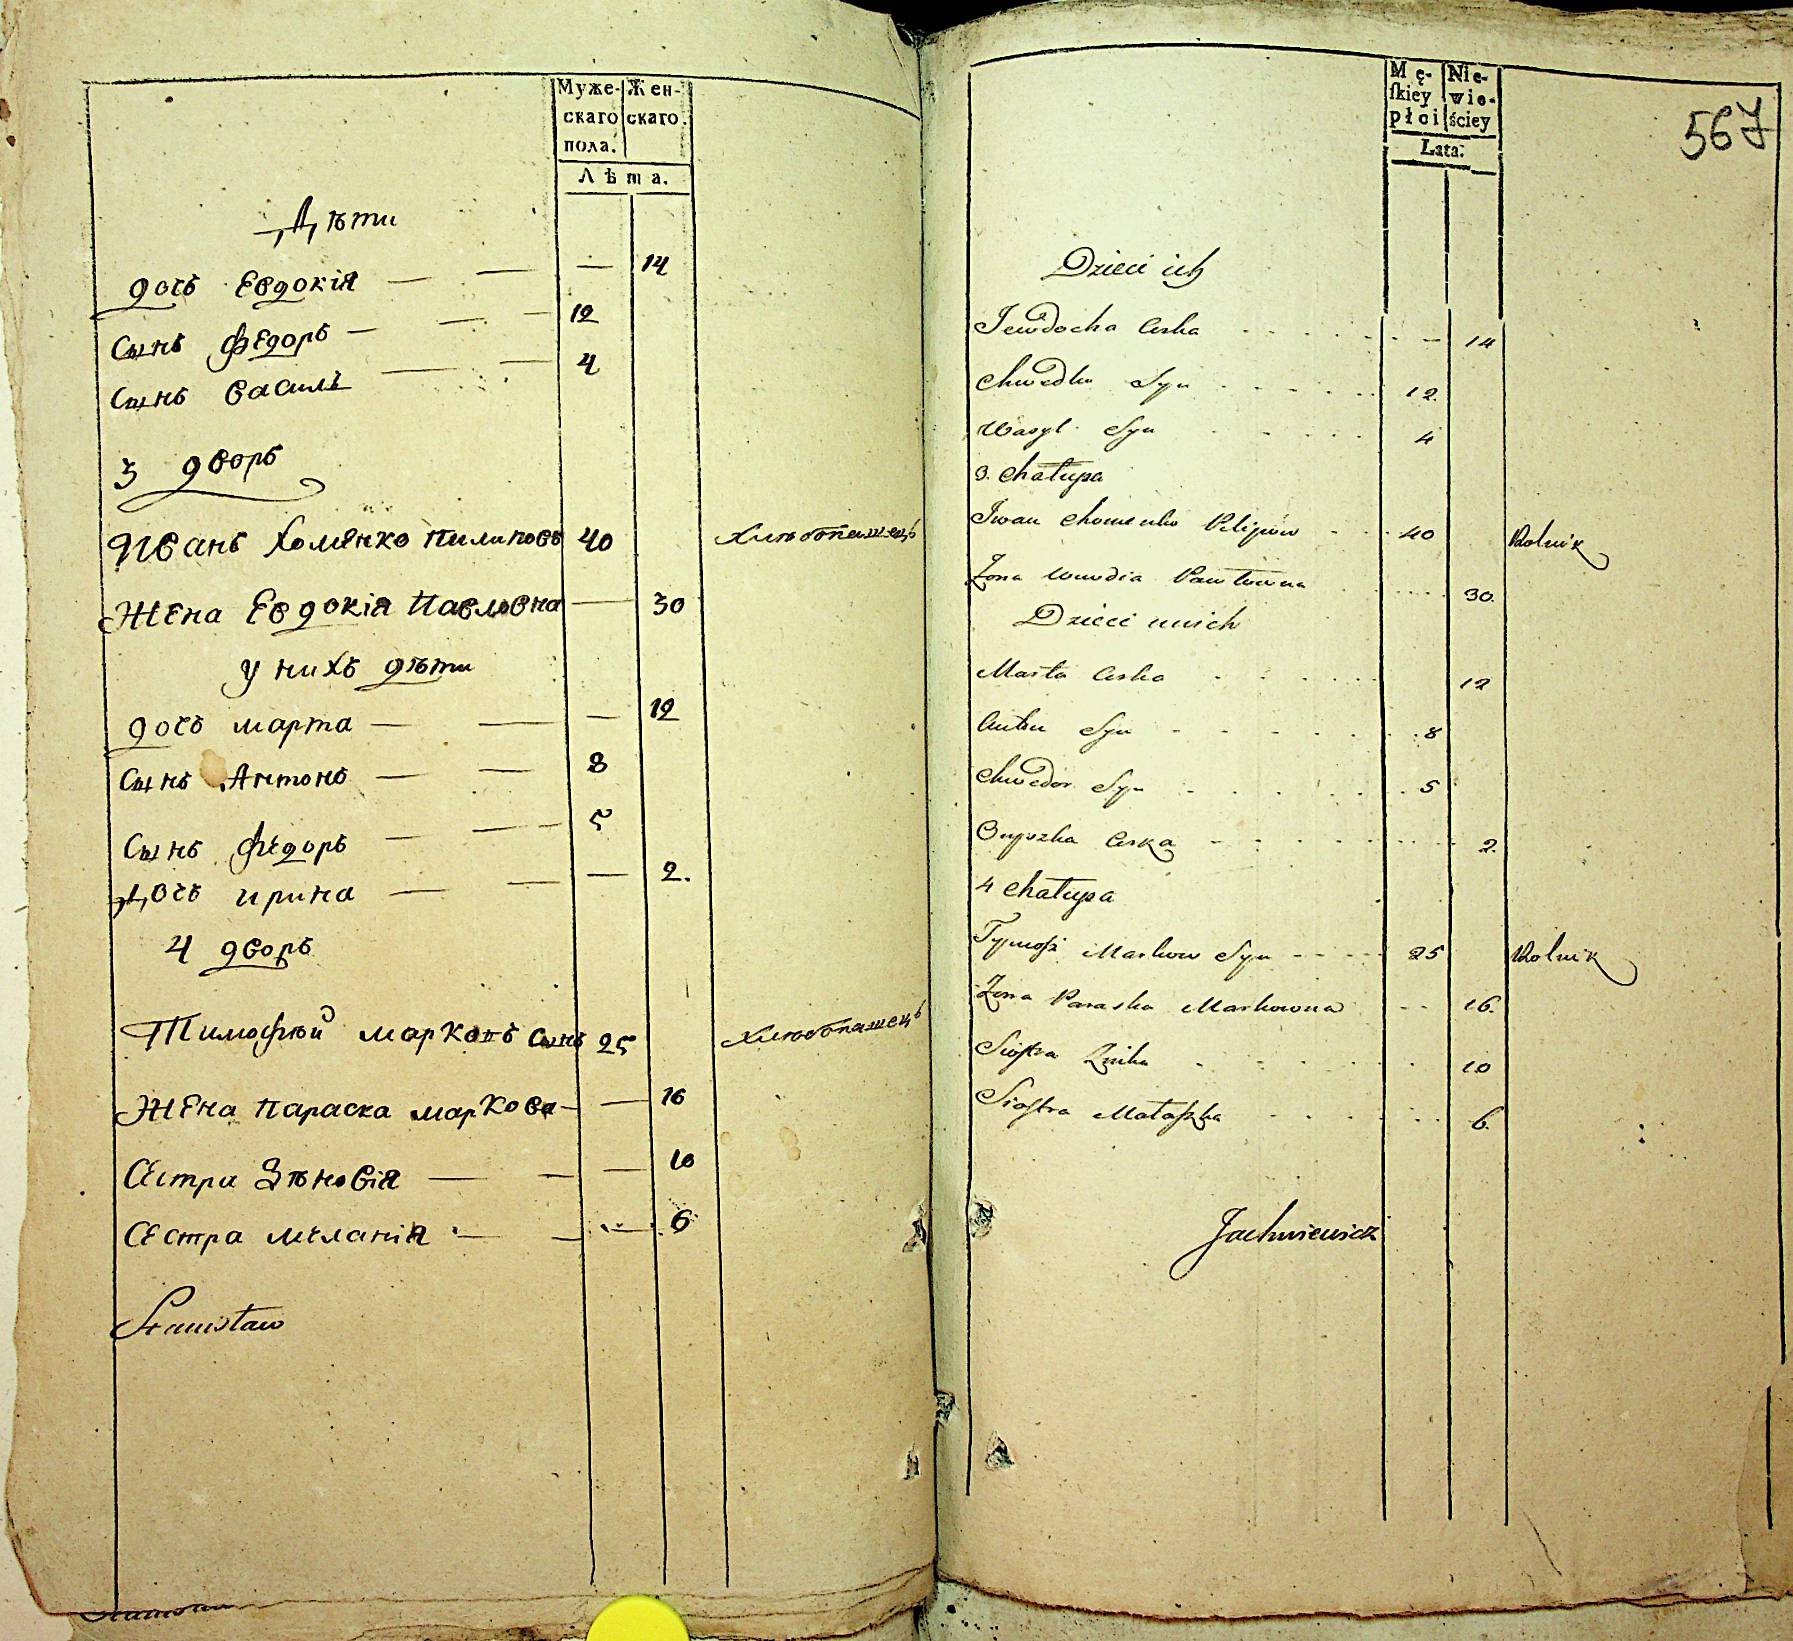 Муже- Жен-
скаго скаго.
пола.
Лѣта.
Дѣти
дочь Евдокія — — — 14
Сынъ Федоръ — — — 12
Сынъ Василь — — 4
3 дворъ
Иванъ Хоменко Пилиповъ 40 Хлѣбопашецъ
Жена Евдокія Павловна — 30
у нихъ дѣти
дочь марта — — — 12
Сынъ Антонъ — — 8
Сынъ Федоръ — — 5
Дочь ирина — — — 2.
4 дворъ
Тимофѣй марковъ Сынъ 25 Хлѣбопашецъ
Жена Параска маркова — — 16
Сестра Зѣновія — — — 10
Сестра меланія — — — 6
Stanisław
Mę- Nie-
skiey wie-
płci ściey
Lata.
567
Dzieci ich
Jewdocha Curka — 14
Chwedko Syn 12.
Wasyl Syn 4
3. Chałupa
Iwan Chomenko Pilipow 40 Rolnik
Żona Pawłowna 30.
Dzieci unich
Marta Curka 12
Anton Syn 8
Chwedor Syn 5
Curka 2.
4 Chałupa
Tymofi Markow Syn 25 Rolnik
Żona Paraska Markowna 16.
Siostra Zinka 10
Siostra Małaszka 6.
Jachniewicz